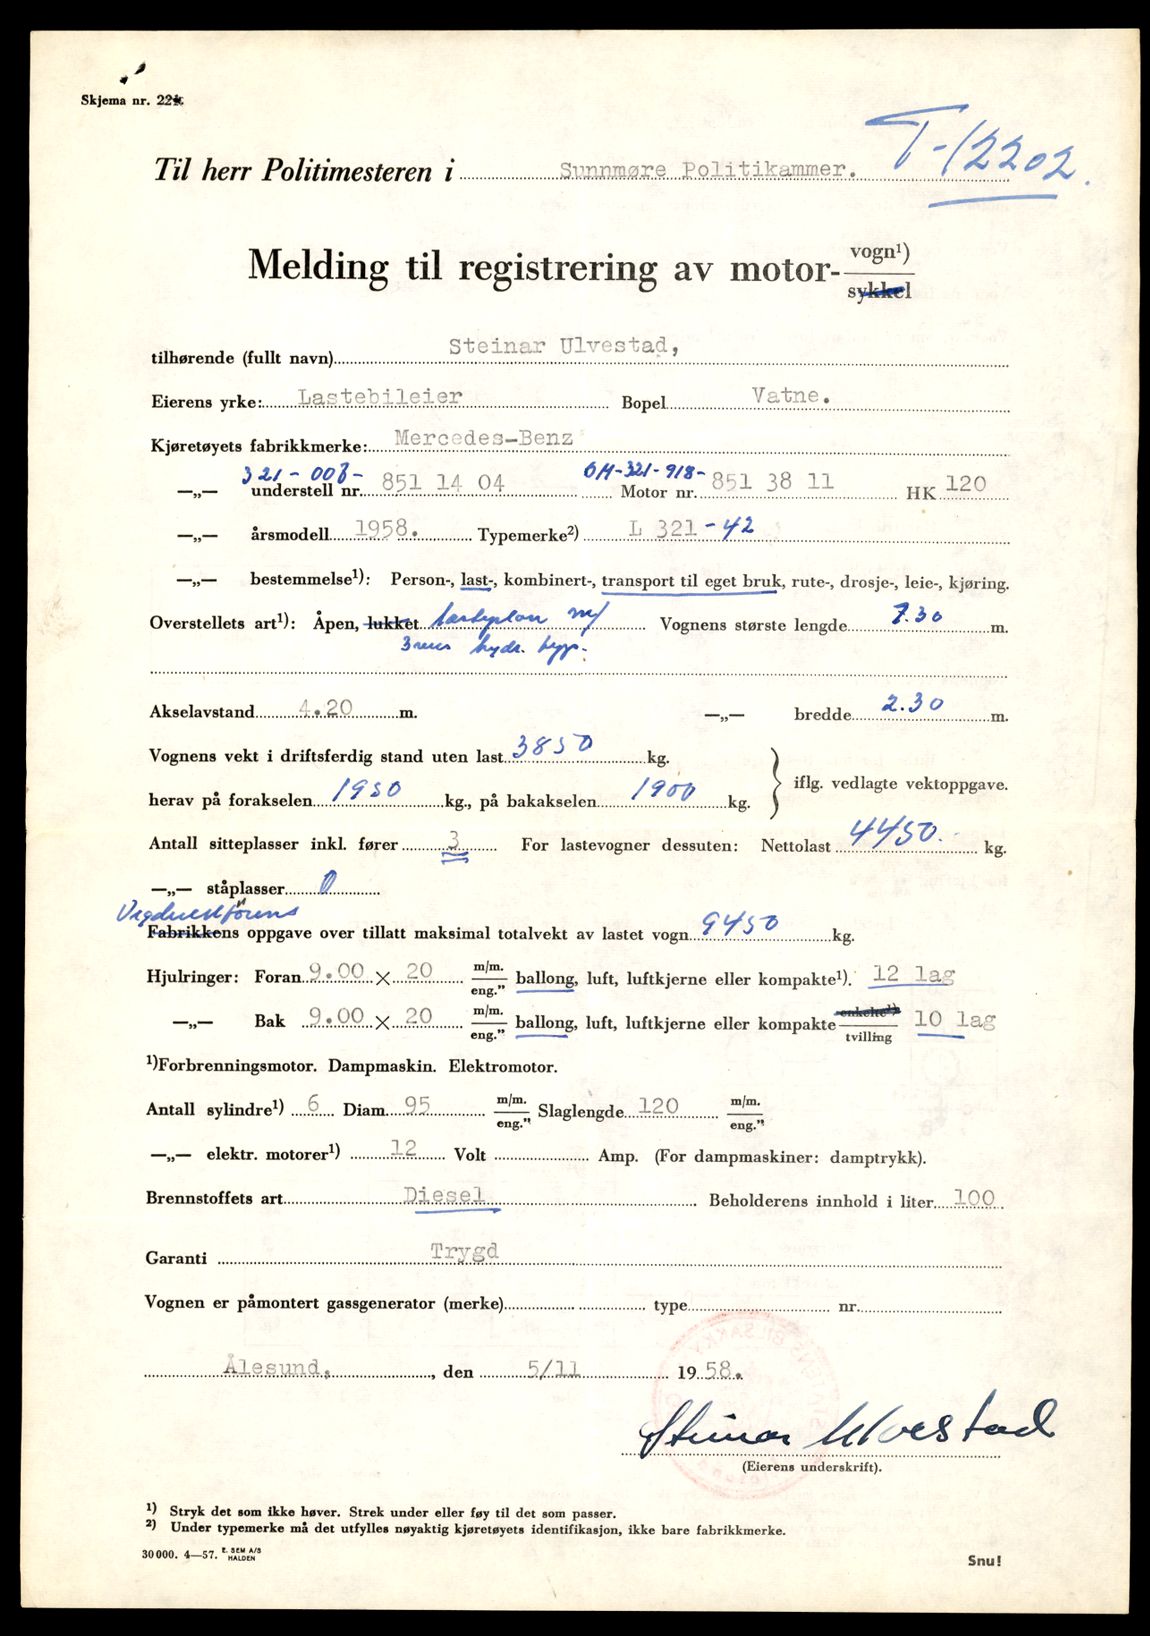 Skjema nr. 224
T-12202.
Til herr Politimesteren i Sunnmøre Politikammer.
Melding til registrering av motor- vogn¹) sykkel
tilhørende (fullt navn) Steinar Ulvestad,
Eierens yrke: Lastebileier Bopel Vatne.
Kjøretøyets fabrikkmerke: Mercedes-Benz
321-003- OM-321-918-
—„— understell nr. 851 14 04 Motor nr. 851 38 11 HK 120
—„— årsmodell 1958. Typemerke²) L 321 -42
—„— bestemmelse¹): Person-, last-, kombinert-, transport til eget bruk, rute-, drosje-, leie-, kjøring.
Overstellets art¹): Åpen, lukket lasteplan m/ Vognens største lengde 7.30 m.
3 veis hydr. tipp.
Akselavstand 4.20 m. —„— bredde 2.30 m.
Vognens vekt i driftsferdig stand uten last 3850 kg.
herav på forakselen 1950 kg., på bakakselen 1900 kg. } iflg. vedlagte vektoppgave.
Antall sitteplasser inkl. fører 3 For lastevogner dessuten: Nettolast 4450. kg.
—„— ståplasser 0
Fabrikkens oppgave over tillatt maksimal totalvekt av lastet vogn 9450 kg.
Hjulringer: Foran 9.00 × 20 m/m. eng.” ballong, luft, luftkjerne eller kompakte¹). 12 lag
—„— Bak 9.00 × 20 m/m. eng.” ballong, luft, luftkjerne eller kompakte enkelte¹) tvilling 10 lag
¹)Forbrenningsmotor. Dampmaskin. Elektromotor.
Antall sylindre¹) 6 Diam. 95 m/m. eng.” Slaglengde 120 m/m. eng.”
—„— elektr. motorer¹) 12 Volt Amp. (For dampmaskiner: damptrykk).
Brennstoffets art Diesel Beholderens innhold i liter 100
Garanti Trygd
Vognen er påmontert gassgenerator (merke) type nr.
Ålesund, , den 5/11 19 58.
Steinar Ulvestad
(Eierens underskrift).
¹) Stryk det som ikke høver. Strek under eller føy til det som passer.
²) Under typemerke må det utfylles nøyaktig kjøretøyets identifikasjon, ikke bare fabrikkmerke.
30 000. 4—57. E. SEM A/S HALDEN
Snu!